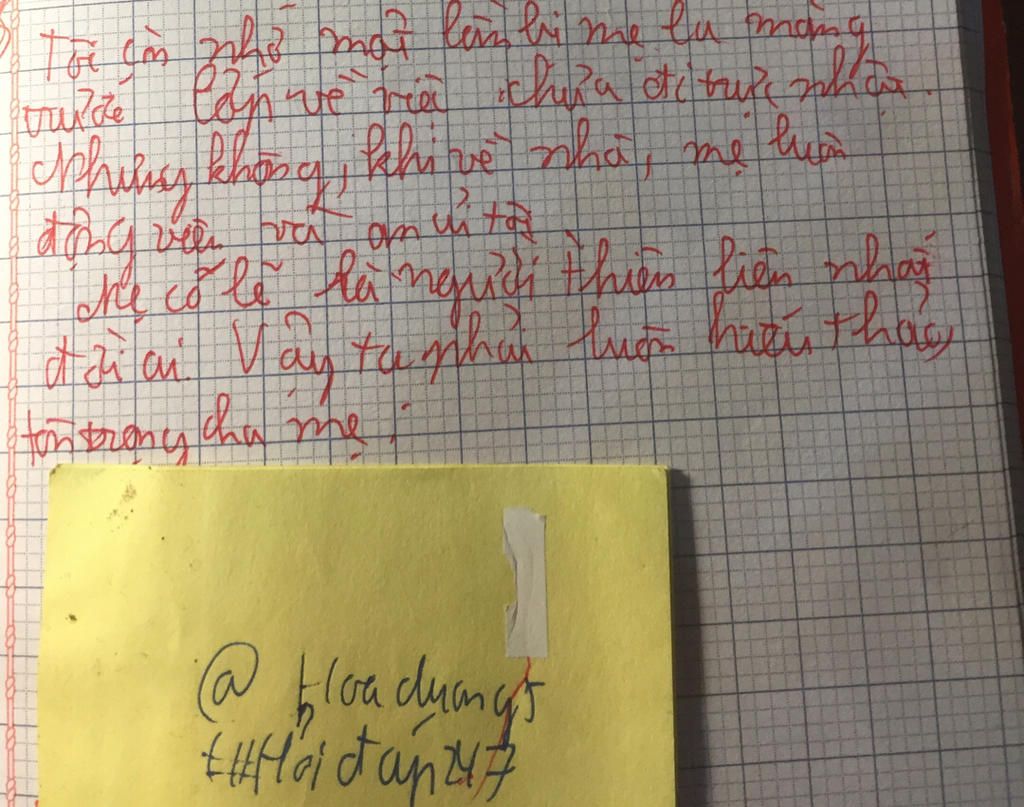 Tôi còn nhớ một lần bị mẹ la mắng
vì về việc chưa đi trực nhật.
Nhưng không, khi về nhà, mẹ luôn
động viên và an ủi tôi
Mẹ có lẽ là người thiên liên nhất
đời ai. Vậy ta phải luôn hiếu thảo,
tôn trọng cha mẹ.
@Hoaduong5
#Hỏi đáp247